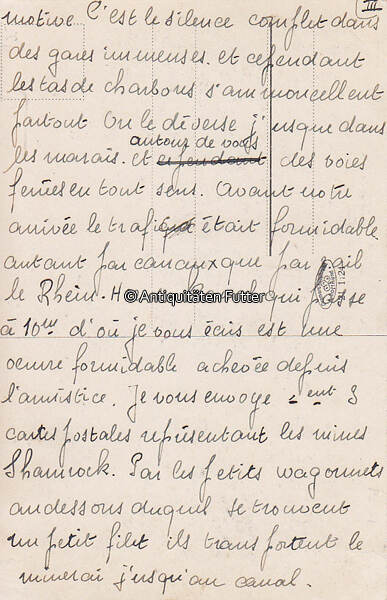 III
motive C'est le silence complet dans
des gares immenses. et cependant
les tas de charbons s'ammoncellent
partout On le déverse j'usque dans
autour de vous
les marais. et cependant des voies
ferrées en tout sens. Avant notre
arrivée le trafic était formidable
autant par canaux que par rail
le Rhein-H canal qui passe
à 10m d'où je vous écris est une
oeuvre formidable achevée depuis
l'armistice. Je vous envoye 3
cartes postales représentant les mines
Shamrock. Par les petits wagonnets
au dessous duquel se trouvent
un petit filet ils transportent le
minerai j'usqu'au canal.
©Antiquitäten Futter